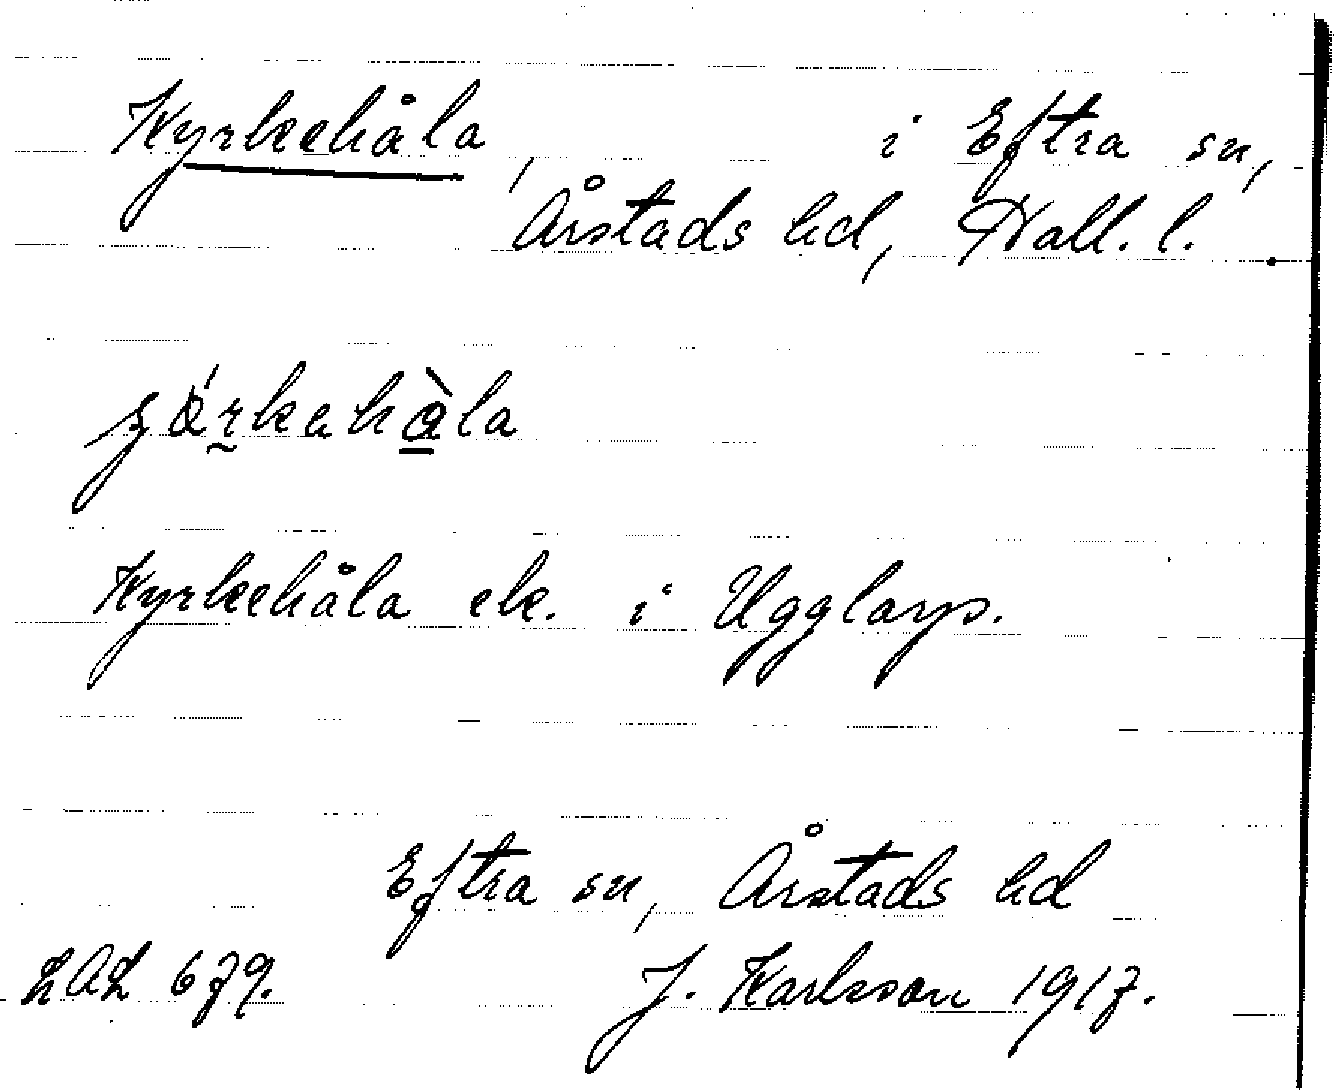 Kyrkehåla, i Eftra sn,
Årstads hd, Hall. l.
Kyrkehåla ek. i Ugglarp.
Eftra sn, Årstads hd
LAL 679. J. Karlsson 1917.